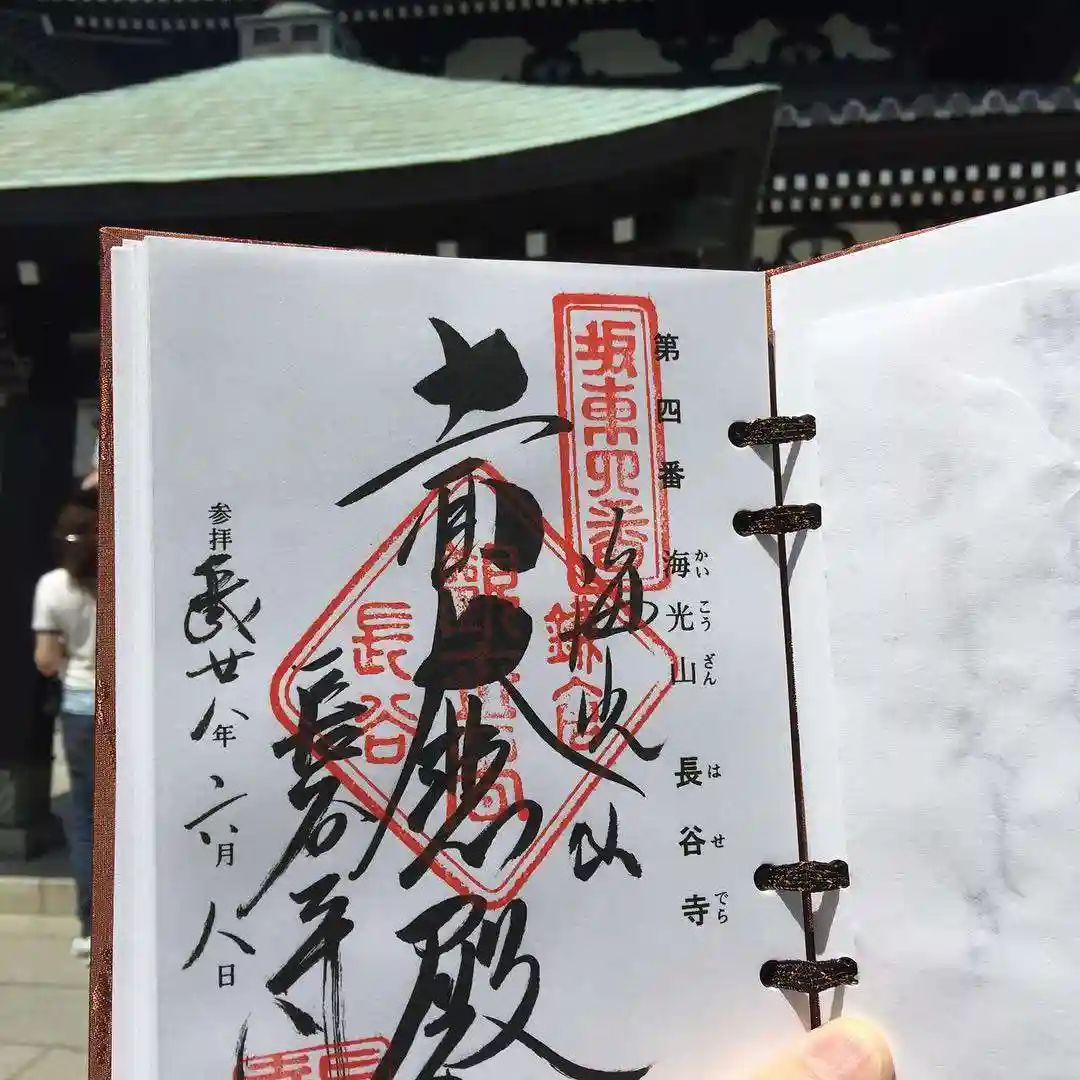 第四番 海光山 長谷寺
かいこうざん はせでら
坂東四番
海光山
十一面大悲殿
鎌倉
長谷
長谷寺
参拝 平成廿八年六月八日